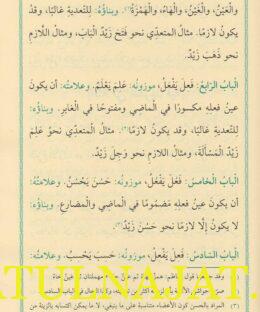 وَالْعَيْنُ، وَالْغَيْنُ، وَالْهَاءُ، وَالْهَمْزَةُ. وَبِنَاؤُهُ: لِلتَّعْدِيَةِ غَالِبًا، وَقَدْ
يَكُونُ لَازِمًا. مِثَالُ الْمُتَعَدِّي نَحْوُ فَتَحَ زَيْدٌ الْبَابَ، وَمِثَالُ اللَّازِمِ
نَحْوُ ذَهَبَ زَيْدٌ.
الْبَابُ الرَّابِعُ: فَعِلَ يَفْعَلُ، مَوْزُونُهُ: عَلِمَ يَعْلَمُ. وَعَلَامَتُهُ: أَنْ يَكُونَ
عَيْنُ فِعْلِهِ مَكْسُورًا فِي الْمَاضِي وَمَفْتُوحًا فِي الْغَابِرِ. وَبِنَاؤُهُ:
لِلتَّعْدِيَةِ غَالِبًا، وَقَدْ يَكُونُ لَازِمًا. مِثَالُ الْمُتَعَدِّي نَحْوُ عَلِمَ
زَيْدٌ الْمَسْأَلَةَ، وَمِثَالُ اللَّازِمِ نَحْوُ وَجِلَ زَيْدٌ.
الْبَابُ الْخَامِسُ: فَعُلَ يَفْعُلُ، مَوْزُونُهُ: حَسُنَ يَحْسُنُ. وَعَلَامَتُهُ:
أَنْ يَكُونَ عَيْنُ فِعْلِهِ مَضْمُومًا فِي الْمَاضِي وَالْمُضَارِعِ. وَبِنَاؤُهُ:
لَا يَكُونُ إِلَّا لَازِمًا نَحْوُ حَسُنَ زَيْدٌ.
الْبَابُ السَّادِسُ: فَعِلَ يَفْعِلُ، مَوْزُونُهُ: حَسِبَ يَحْسِبُ. وَعَلَامَتُهُ:
(٣) المراد بالحسن كون الأعضاء متناسبة على ما ينبغي، لا ما يمكن اكتسابه بالزينة من